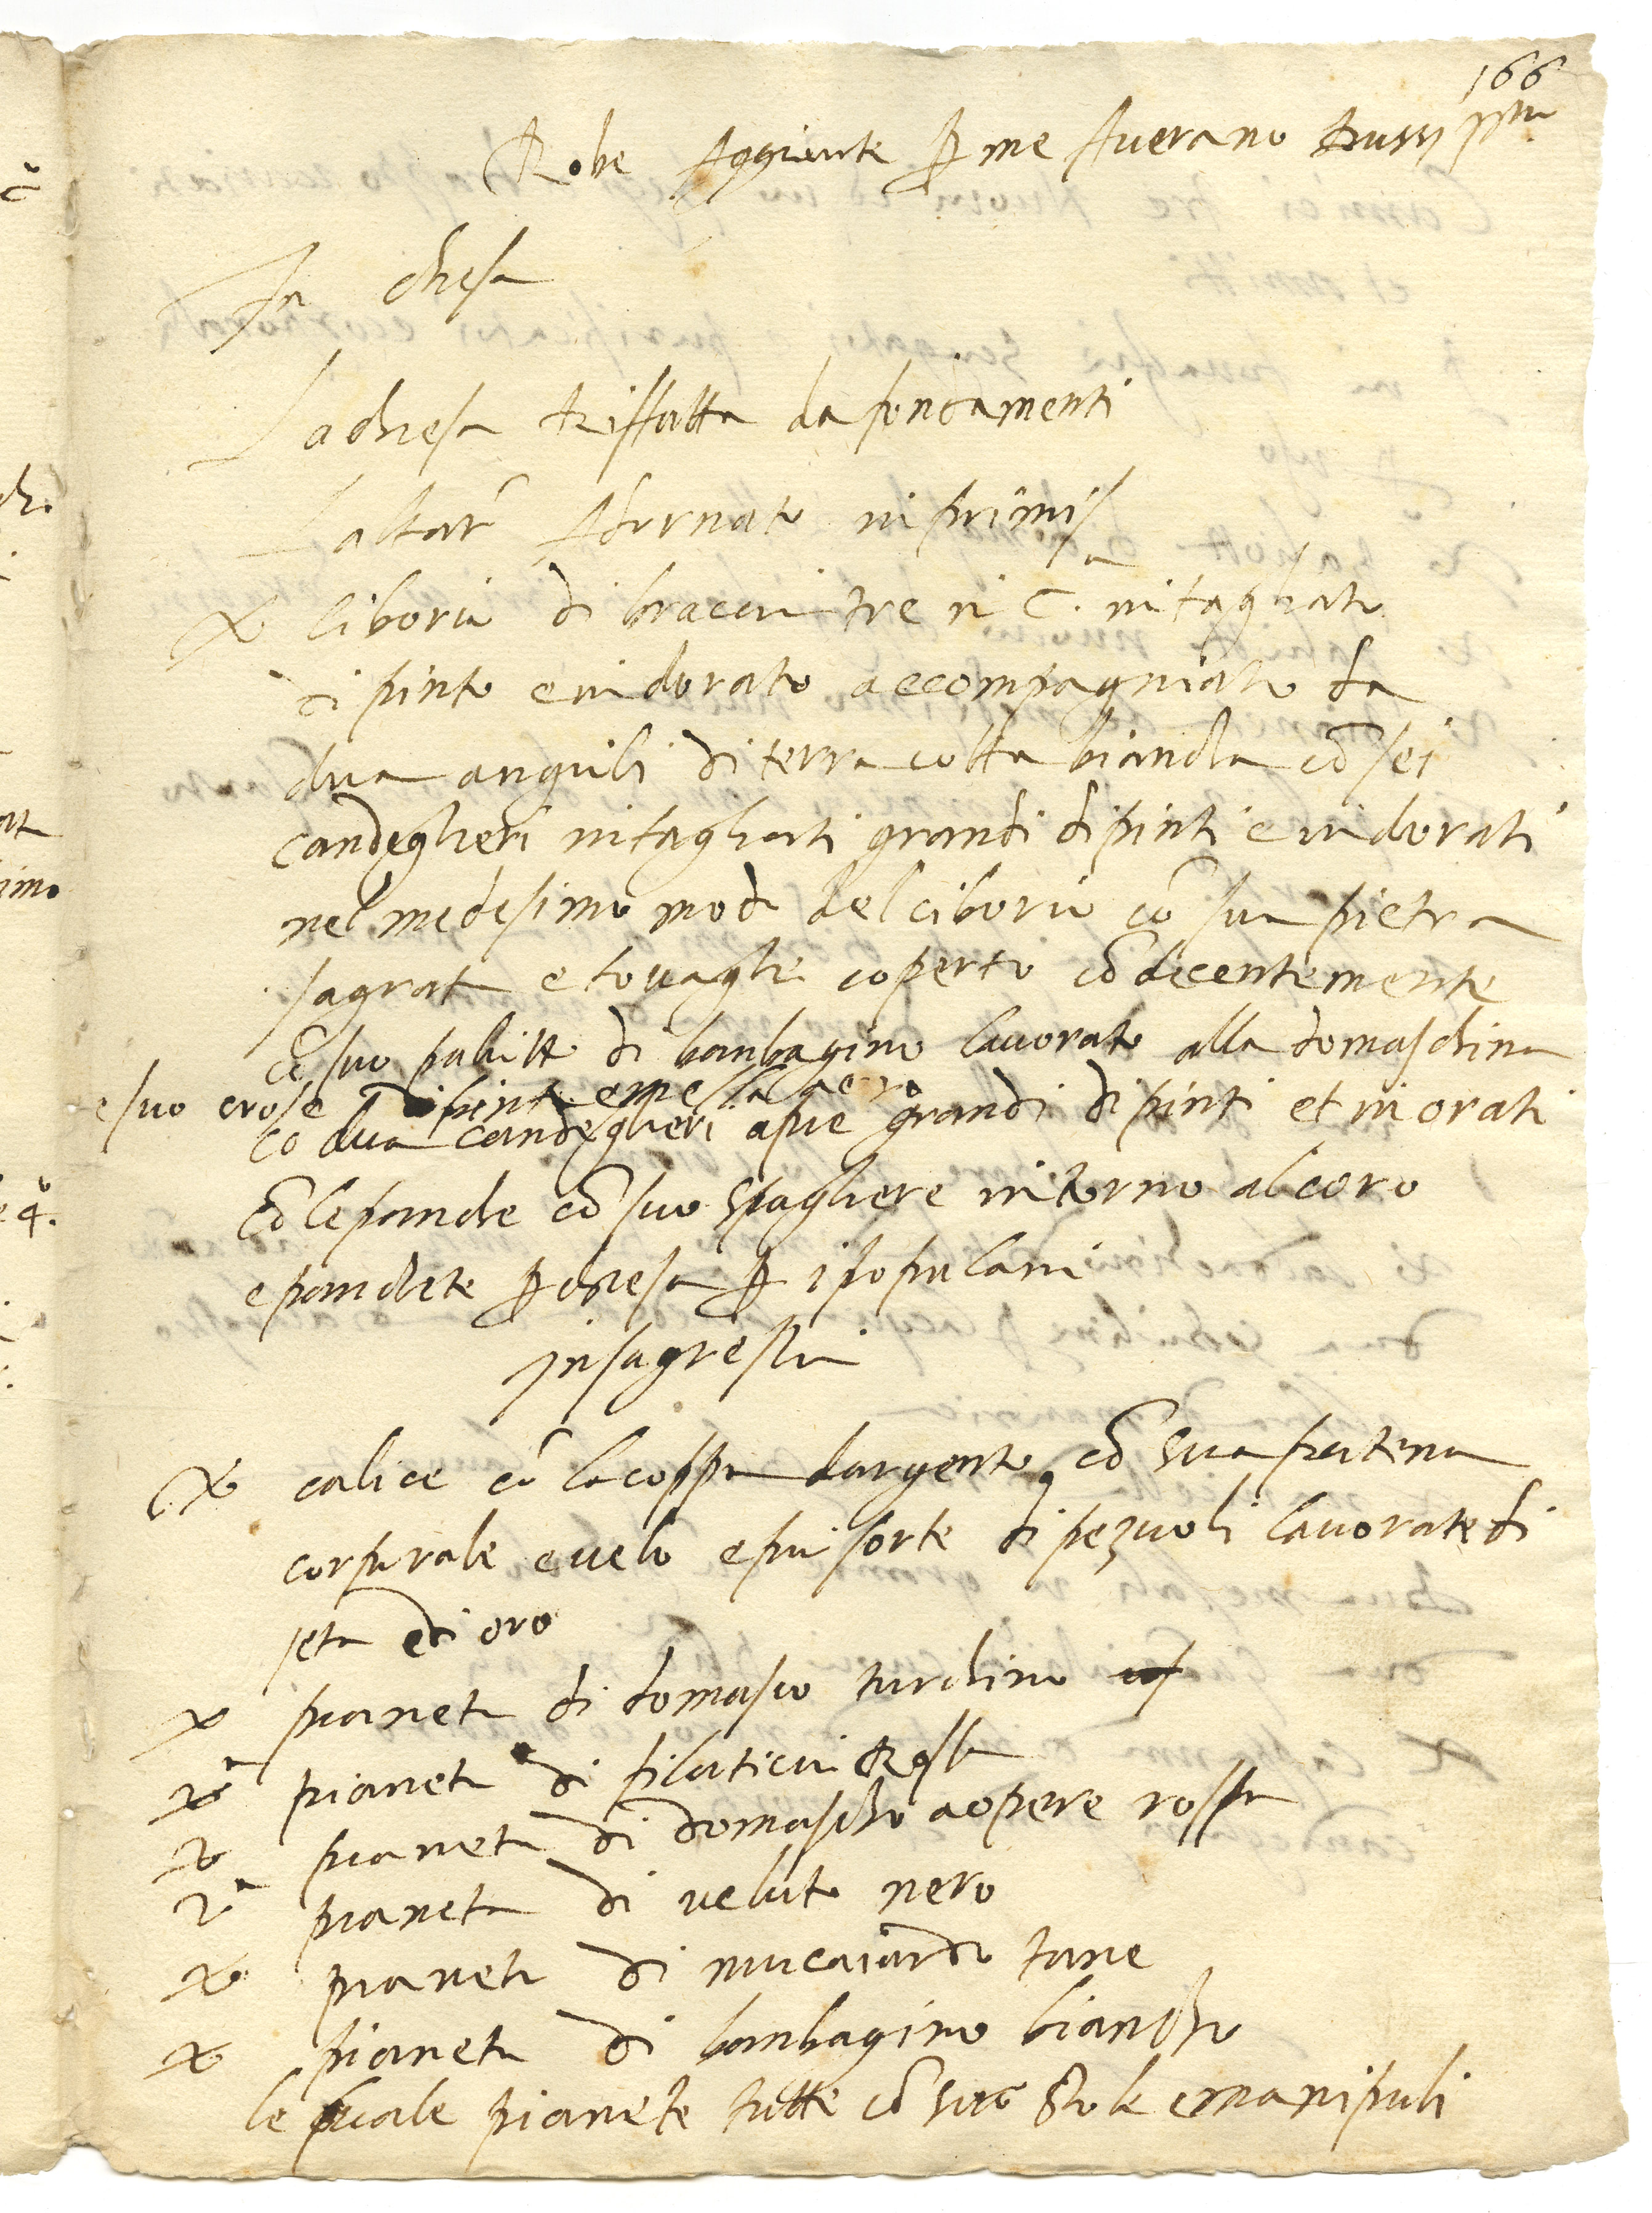 166
Robe Aggiunte p me Averano Bussi
In chiesa
La chiesa Riffatta da fondamenti
Laltar Adornato in primis
ciborio di braccia tre in c. intagliato
di pinto e indorato accompagniato da
dua angiuli di terra cotta biancha cō sei
candeglieri intagliati grandi dipinti e indorati
nel medesimo modo del ciborio cō sua pietra
sagrata e tovaglie coperto cō decentemente
cō suo paliotto di banbagino lavorato alla domaschina
e suo crose dipinta e messa a oro
co dua candeglieri apie grandi dipinti et in orati
cō le panche cō suo spagliere intorno al coro
e panchete p chiesa p i populani
in sagrestia
calice cō la coppa dargento cō sua patena
corporale e velo e piu sorte di pezuoli lavorate di
seta e di oro
pianeta di domasco turchino
pianeta di filaticci Rossa
pianeta di domascho a opere rossa
pianeta di veluto nero
pianeta di mucaiardo tane
pianeta di banbagino biancho
le quale pianete tutte cō suo stole e manipuli